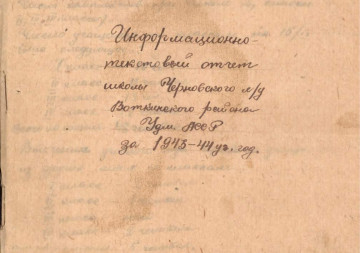 Информационно-
текстовый отчет
школы Черновского л/у
Воткинского района
Удм. АССР
за 1943-44 уч. год.